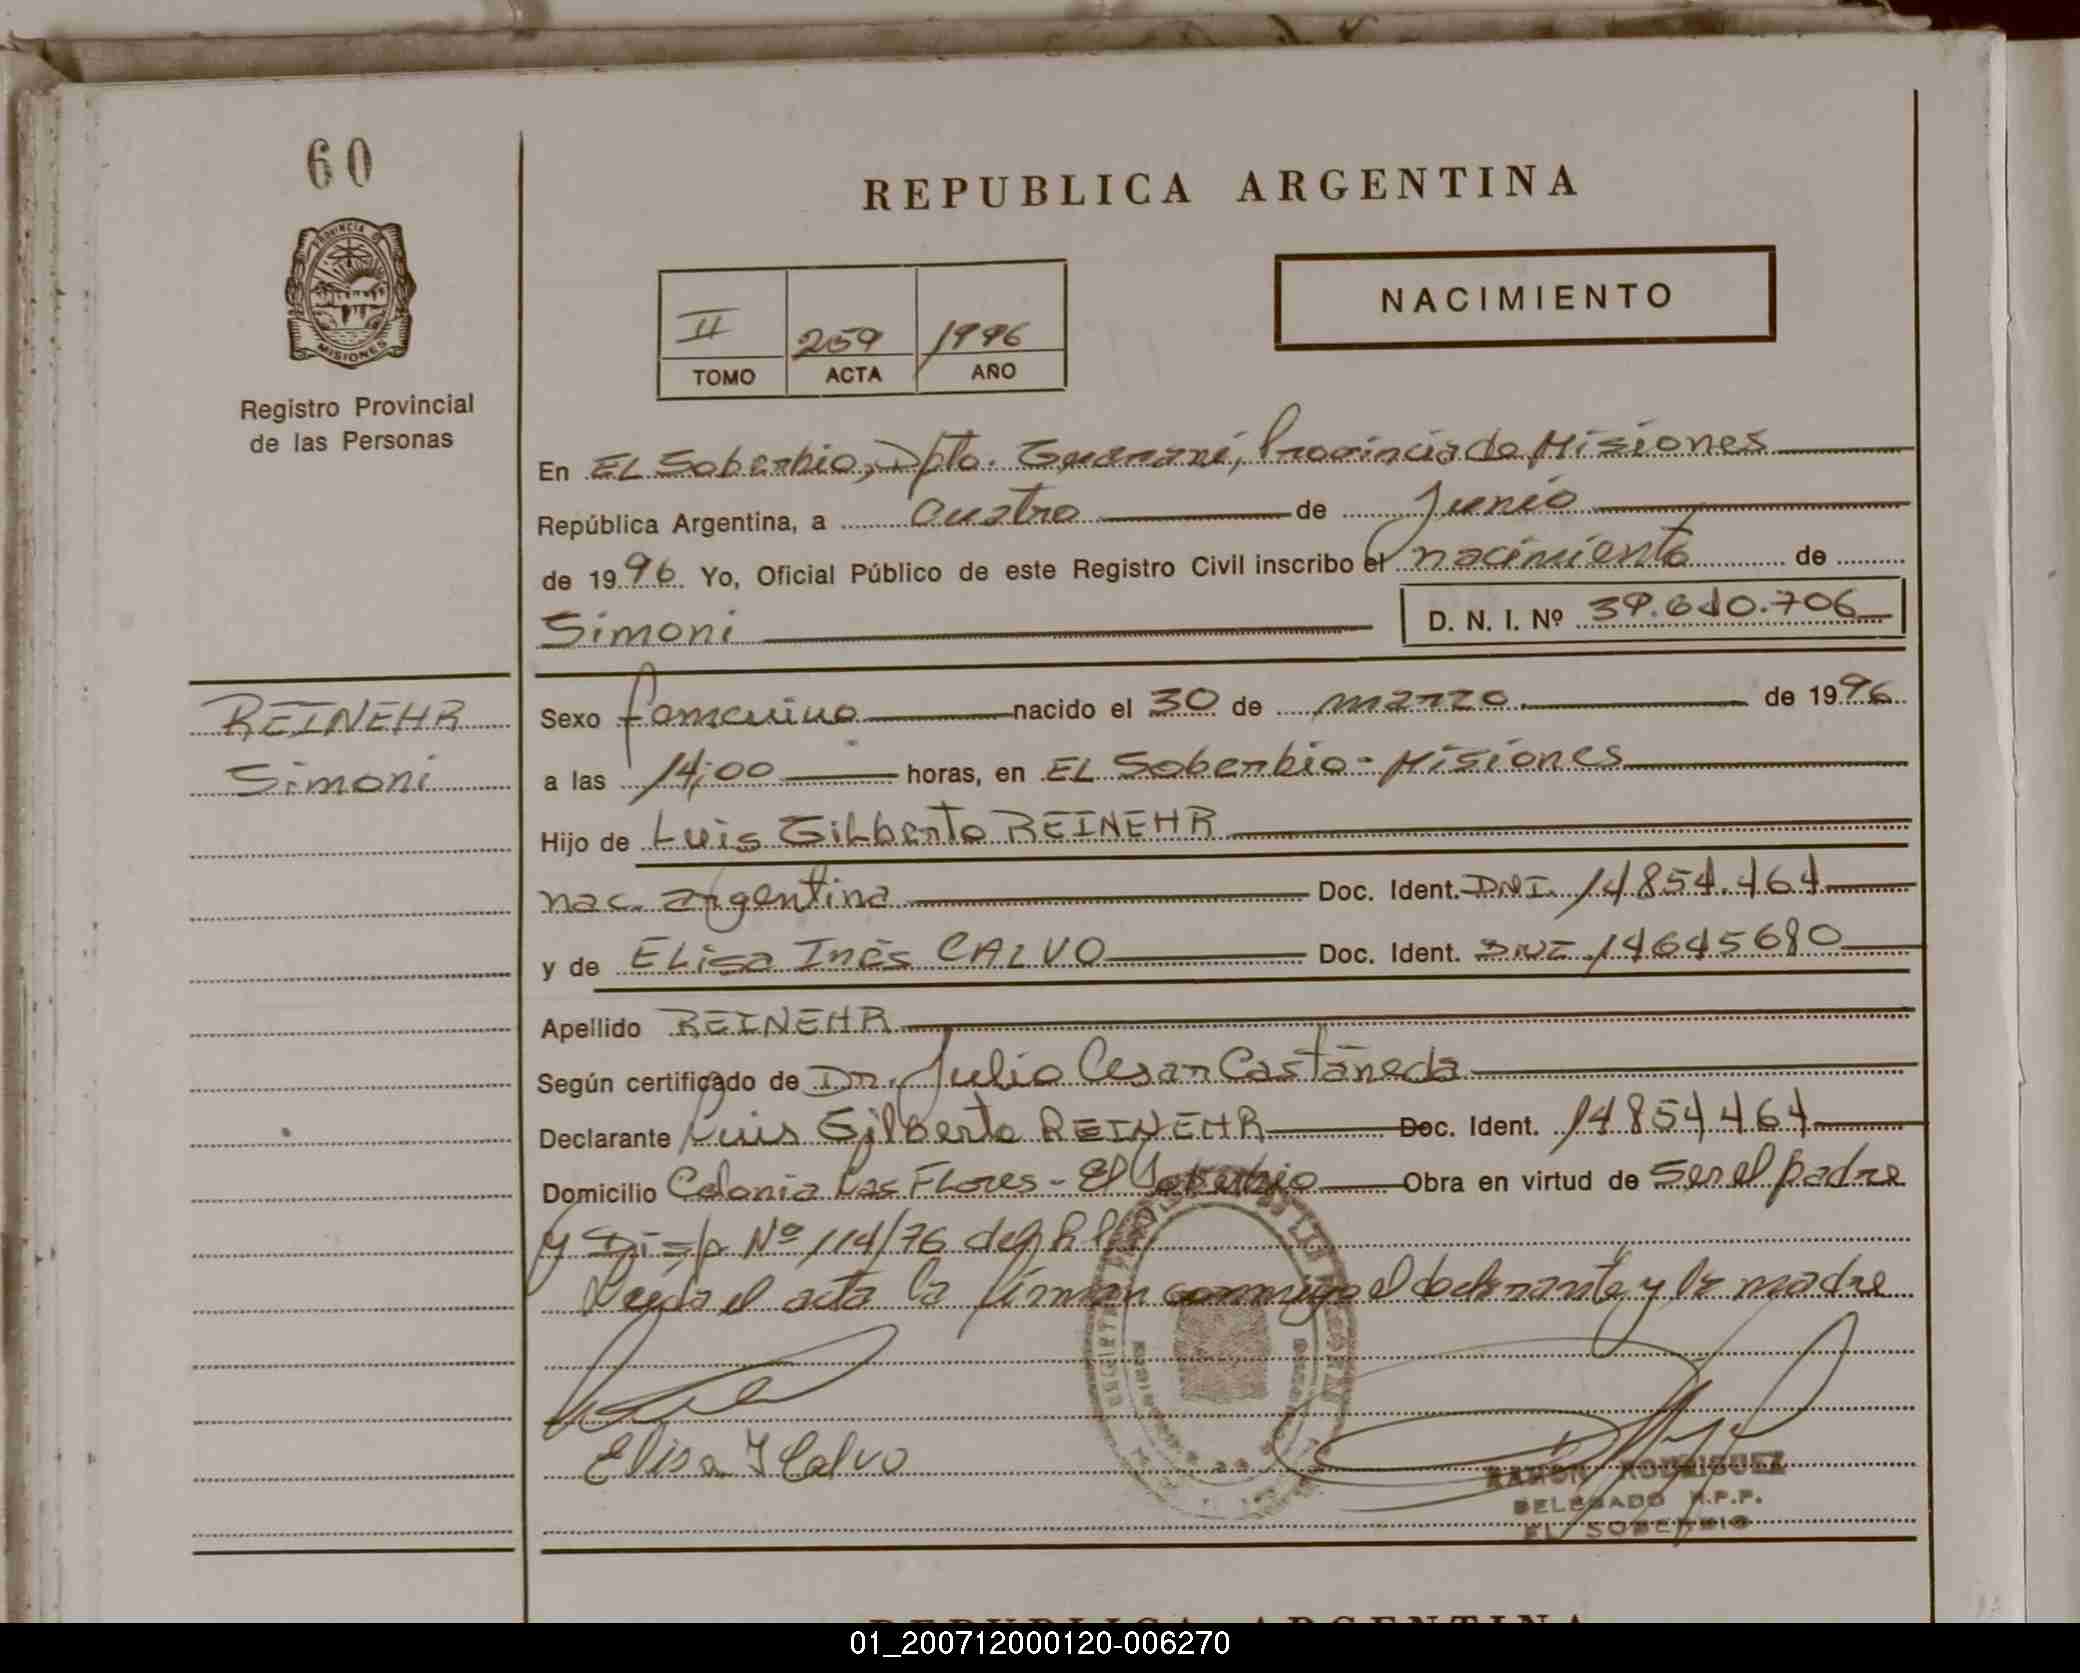 60
REPUBLICA ARGENTINA
PROVINCIA DE
MISIONES
Registro Provincial
de las Personas
NACIMIENTO
II 259 1996
TOMO ACTA AÑO
En EL Soberbio, Dpto. Guaraní, Provincia de Misiones
República Argentina, a cuatro de Junio
de 1996 Yo, Oficial Público de este Registro Civil inscribo el nacimiento de
Simoni D. N. I. Nº 39.610.706
REINEHR
Simoni
Sexo femenino nacido el 30 de marzo de 1996
a las 14:00 horas, en EL Soberbio - Misiones
Hijo de Luis Gilberto REINEHR
nac. argentina Doc. Ident. DNI. 14854.464
y de Elisa Inés CALVO Doc. Ident. DNI 14645680
Apellido REINEHR
Según certificado de Dr. Julio Cesar Castañeda
Declarante Luis Gilberto REINEHR Doc. Ident. 14854464
Domicilio Colonia Las Flores - El Soberbio Obra en virtud de Ser el padre
y Disp Nº 114/76
Leida el acta la firman conmigo el declarante y la madre
Elisa I Calvo
RAMON RODRIGUEZ
DELEGADO R.P.P.
EL SOBERBIO
REPUBLICA ARGENTINA
01_200712000120-006270